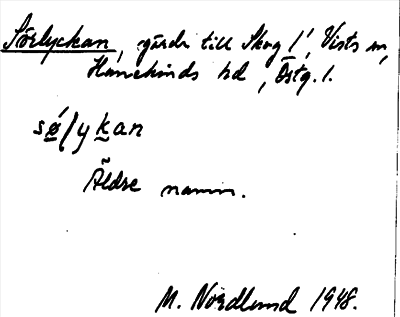 Sörlyckan, gärde till Skog 1¹, Vists sn,
Hanekinds hd, Östg. l.
sǿlykan
Äldre namn.
M. Nordlund 1948.